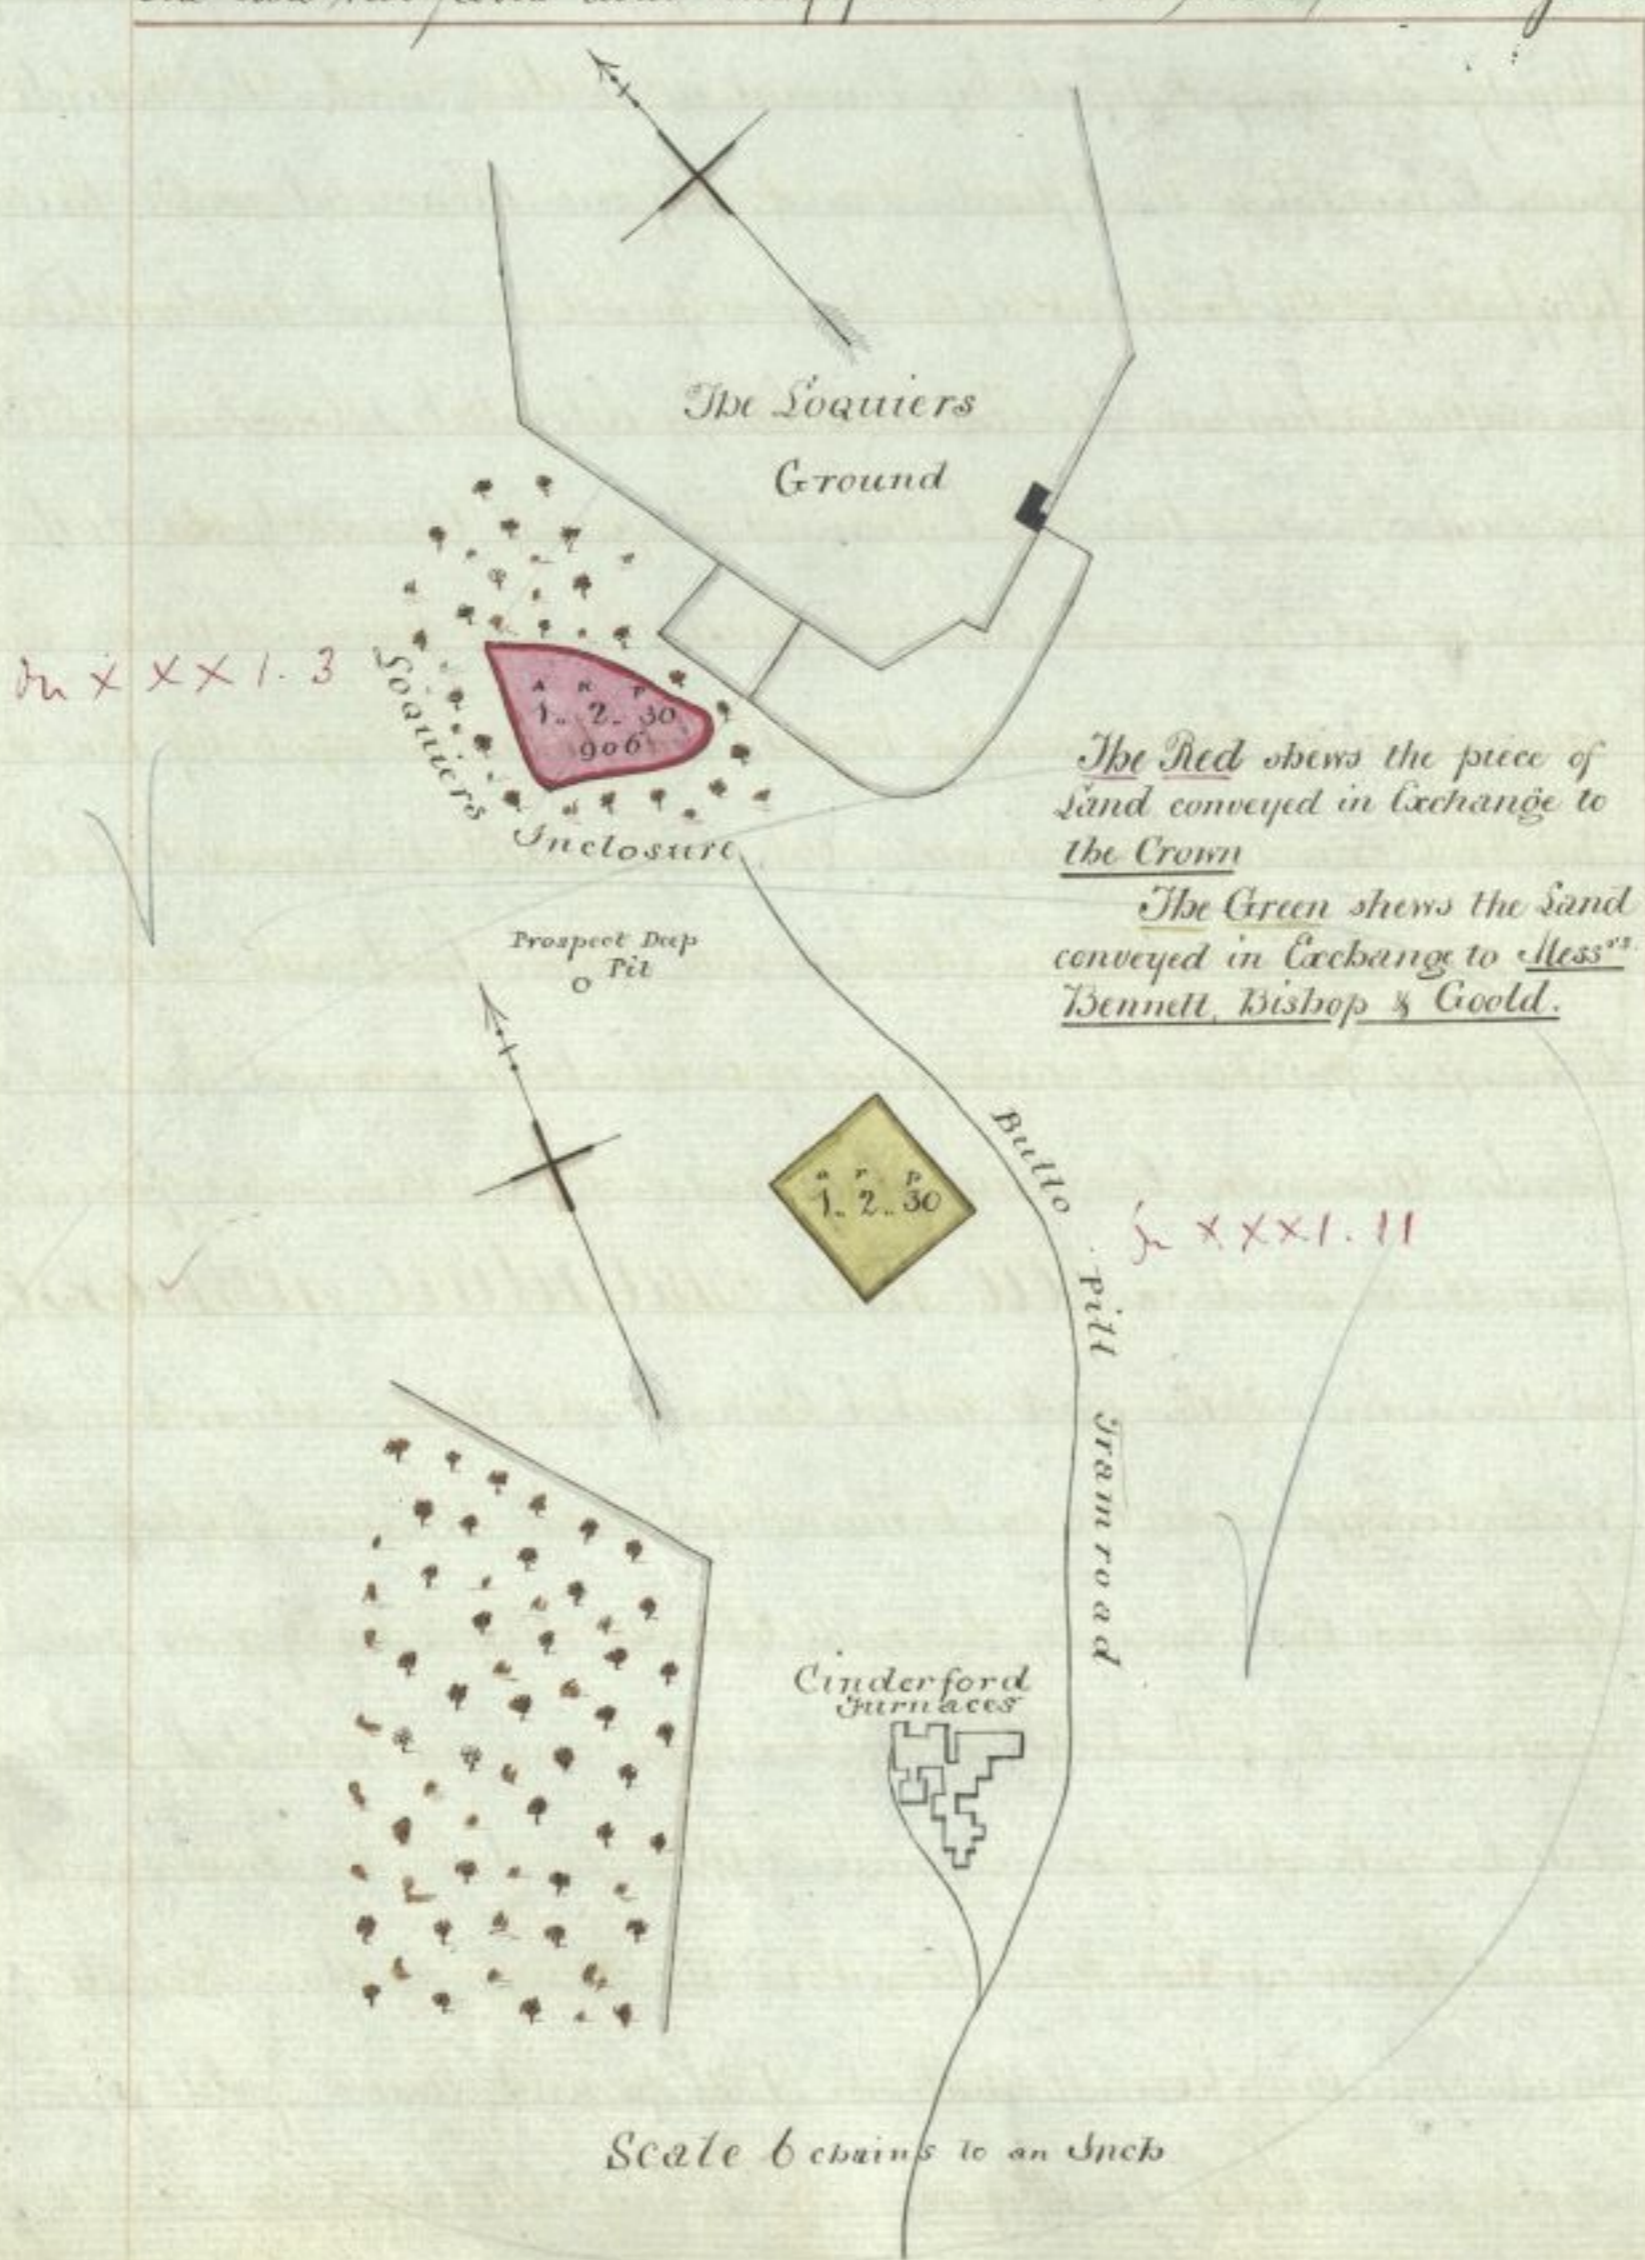 The Loquiers
Ground
On XXXI. 3
A R P
1.. 2.. 30
906
Loquiers
Inclosure
The Red shews the piece of
Land conveyed in Exchange to
the Crown
The Green shews the Land
conveyed in Exchange to Messrs.
Bennett, Bishop & Goold.
Prospect Deep
Pit
a r p
1.. 2.. 30
Bullo
pill
Tramroad
XXXI. 11
Cinderford
Furnaces
Scale 6 chains to an Inch